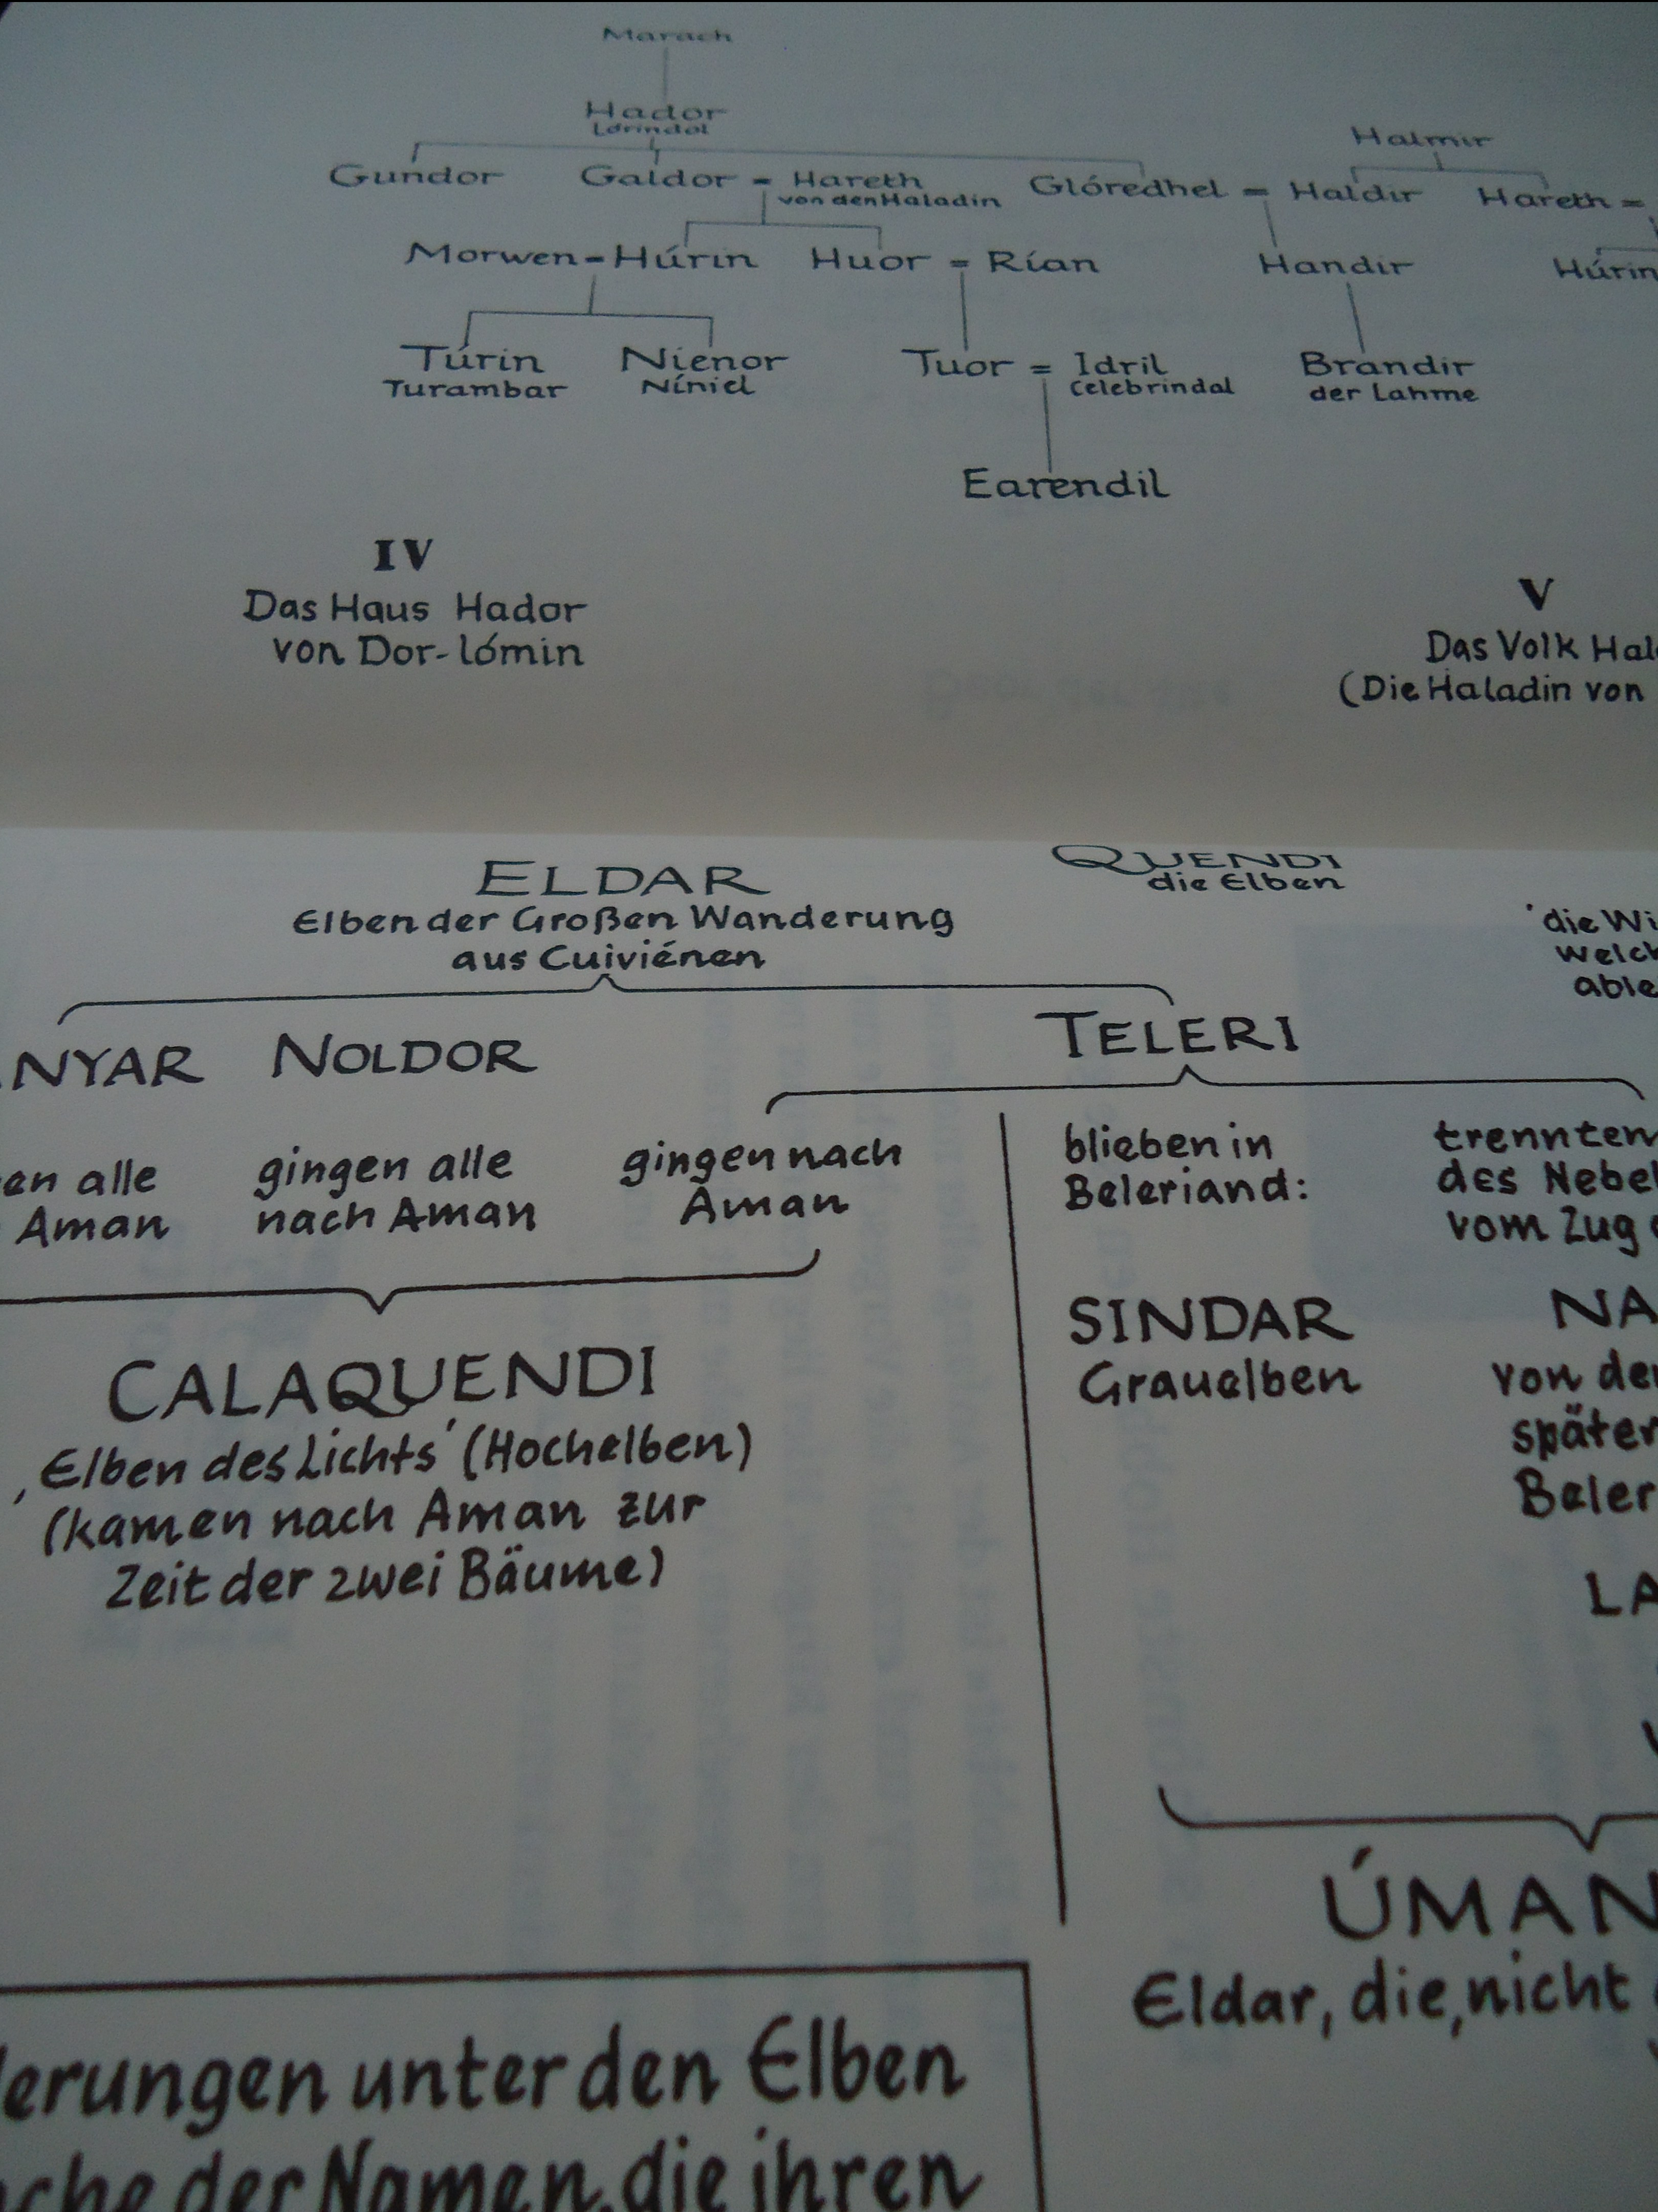 Marach
Hador
Lórindol
Halmir
Gundor Galdor = Hareth Glóredhel = Haldir Hareth =
von den Haladin
Morwen = Húrin Huor = Rían Handir Húrin
Túrin Nienor Tuor = Idril Brandir
Turambar Níniel Celebrindal der Lahme
Earendil
IV
Das Haus Hador
von Dor-lómin
V
Das Volk Hal
(Die Haladin von
QUENDI
die Elben
ELDAR
Elben der Großen Wanderung
aus Cuiviénen
'die Wi
welch
able
NYAR NOLDOR TELERI
en alle gingen alle gingen nach blieben in trennten
Aman nach Aman Aman Beleriand: des Nebel
vom Zug
CALAQUENDI
‚Elben des Lichts' (Hochelben)
(kamen nach Aman zur
Zeit der zwei Bäume)
SINDAR NA
Grauelben von de
später
Beler
LA
ÚMAN
Eldar, die‚nicht
erungen unter den Elben
che der Namen, die ihren